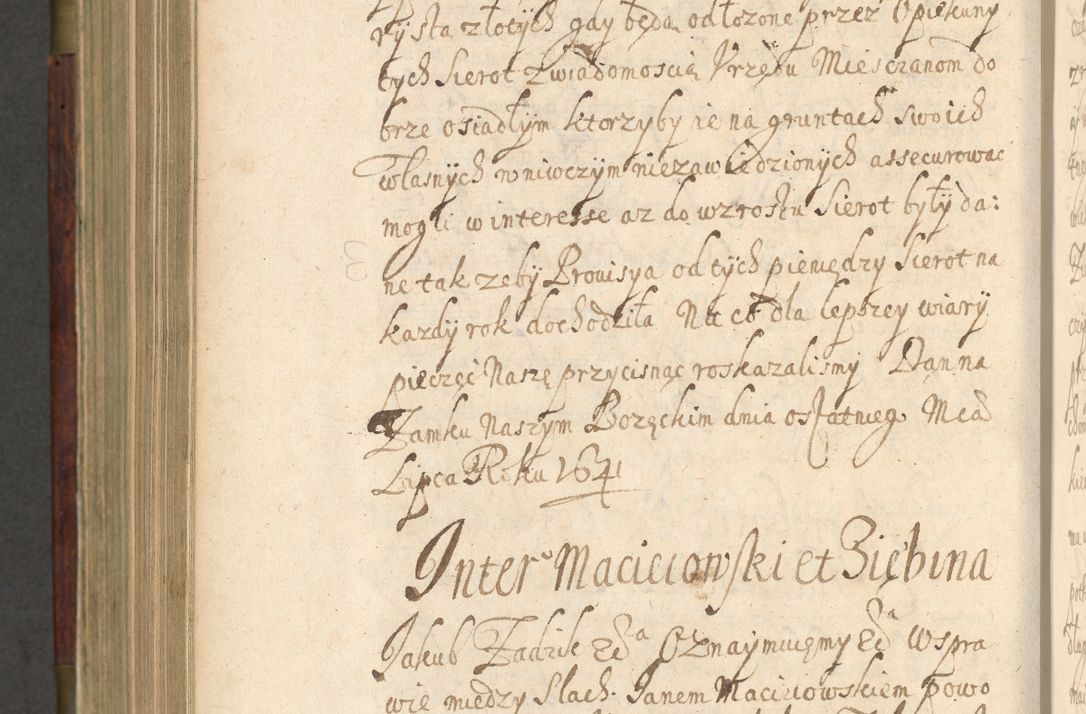 rysta złotych gdy będą odłozone przez Opiekuny
tych Sierot z wiadomoscią Vrzędu Miesczanom do
brze osiadłym ktorzyby ie na gruntach swoich
własnych w niwczym niezawiedzionych assecurowac
mogli w interesse az do wzrostu Sierot były da:
ne tak zeby Prouisya od tych pieniędzy Sierot na
kazdy rok dochodziła Na co dla lepszey wiary
pieczęć Naszę przycisnąc roskazalismy Dan na
Zamku Naszym Bozęckim dnia ostatnieg Mca
Lipca Roku 1641
Inter Macieiowski et Ziębina
Jakub Zadzik &c Oznaymuięmy &c W spra
wie miedzy Slach. Janem Macieiowskiem powo